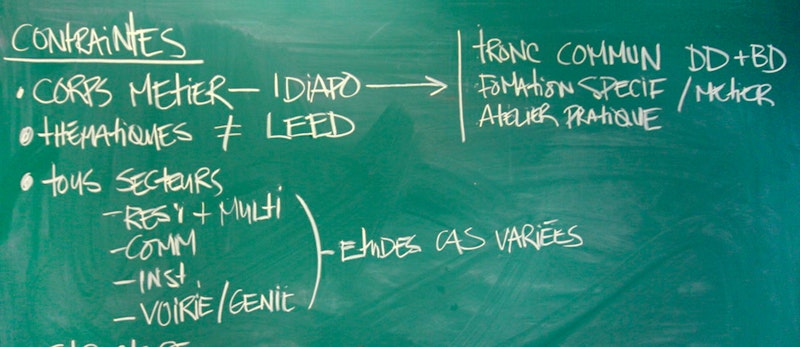 CONTRAINTES
• CORPS METIER — 1 DIAPO →
TRONC COMMUN DD + BD
FOMATION SPECIF / METIER
ATELIER PRATIQUE
• THÉMATIQUES ≠ LEED
• TOUS SECTEURS
- RESI + MULTI
- COMM
- INST.
- VOIRIE/GENIE
ETUDES CAS VARIÉES